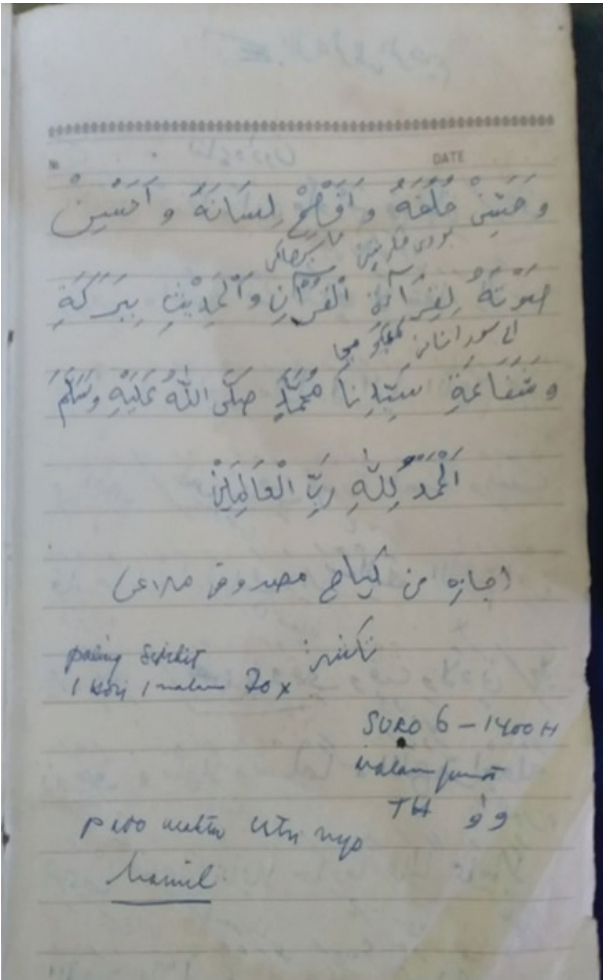 No DATE
وَحَسِّنْ خُلُقَهُ وَافْصَحْ لِسَانَهُ وَاَحْسِنْ
بودى فكرتين
صَوْتَهُ لِقِرَآءَةِ الْقُرْآنِ وَالْحَدِيْثِ بِبَرَكَةِ
وَشَفَاعَةِ سَيِّدِنَا مُحَمَّدٍ صَلَّى اللهُ عَلَيْهِ وَسَلَّمَ
اَلْحَمْدُ لِلّٰهِ رَبِّ الْعَالَمِيْنَ
اجازه من كياح مصدوق
paling sedikit
1 hari 1 malam 70 x
SURO 6 - 1400 H
malam jum'at
TH ٩٩
pado waktu istri nyo
hamil